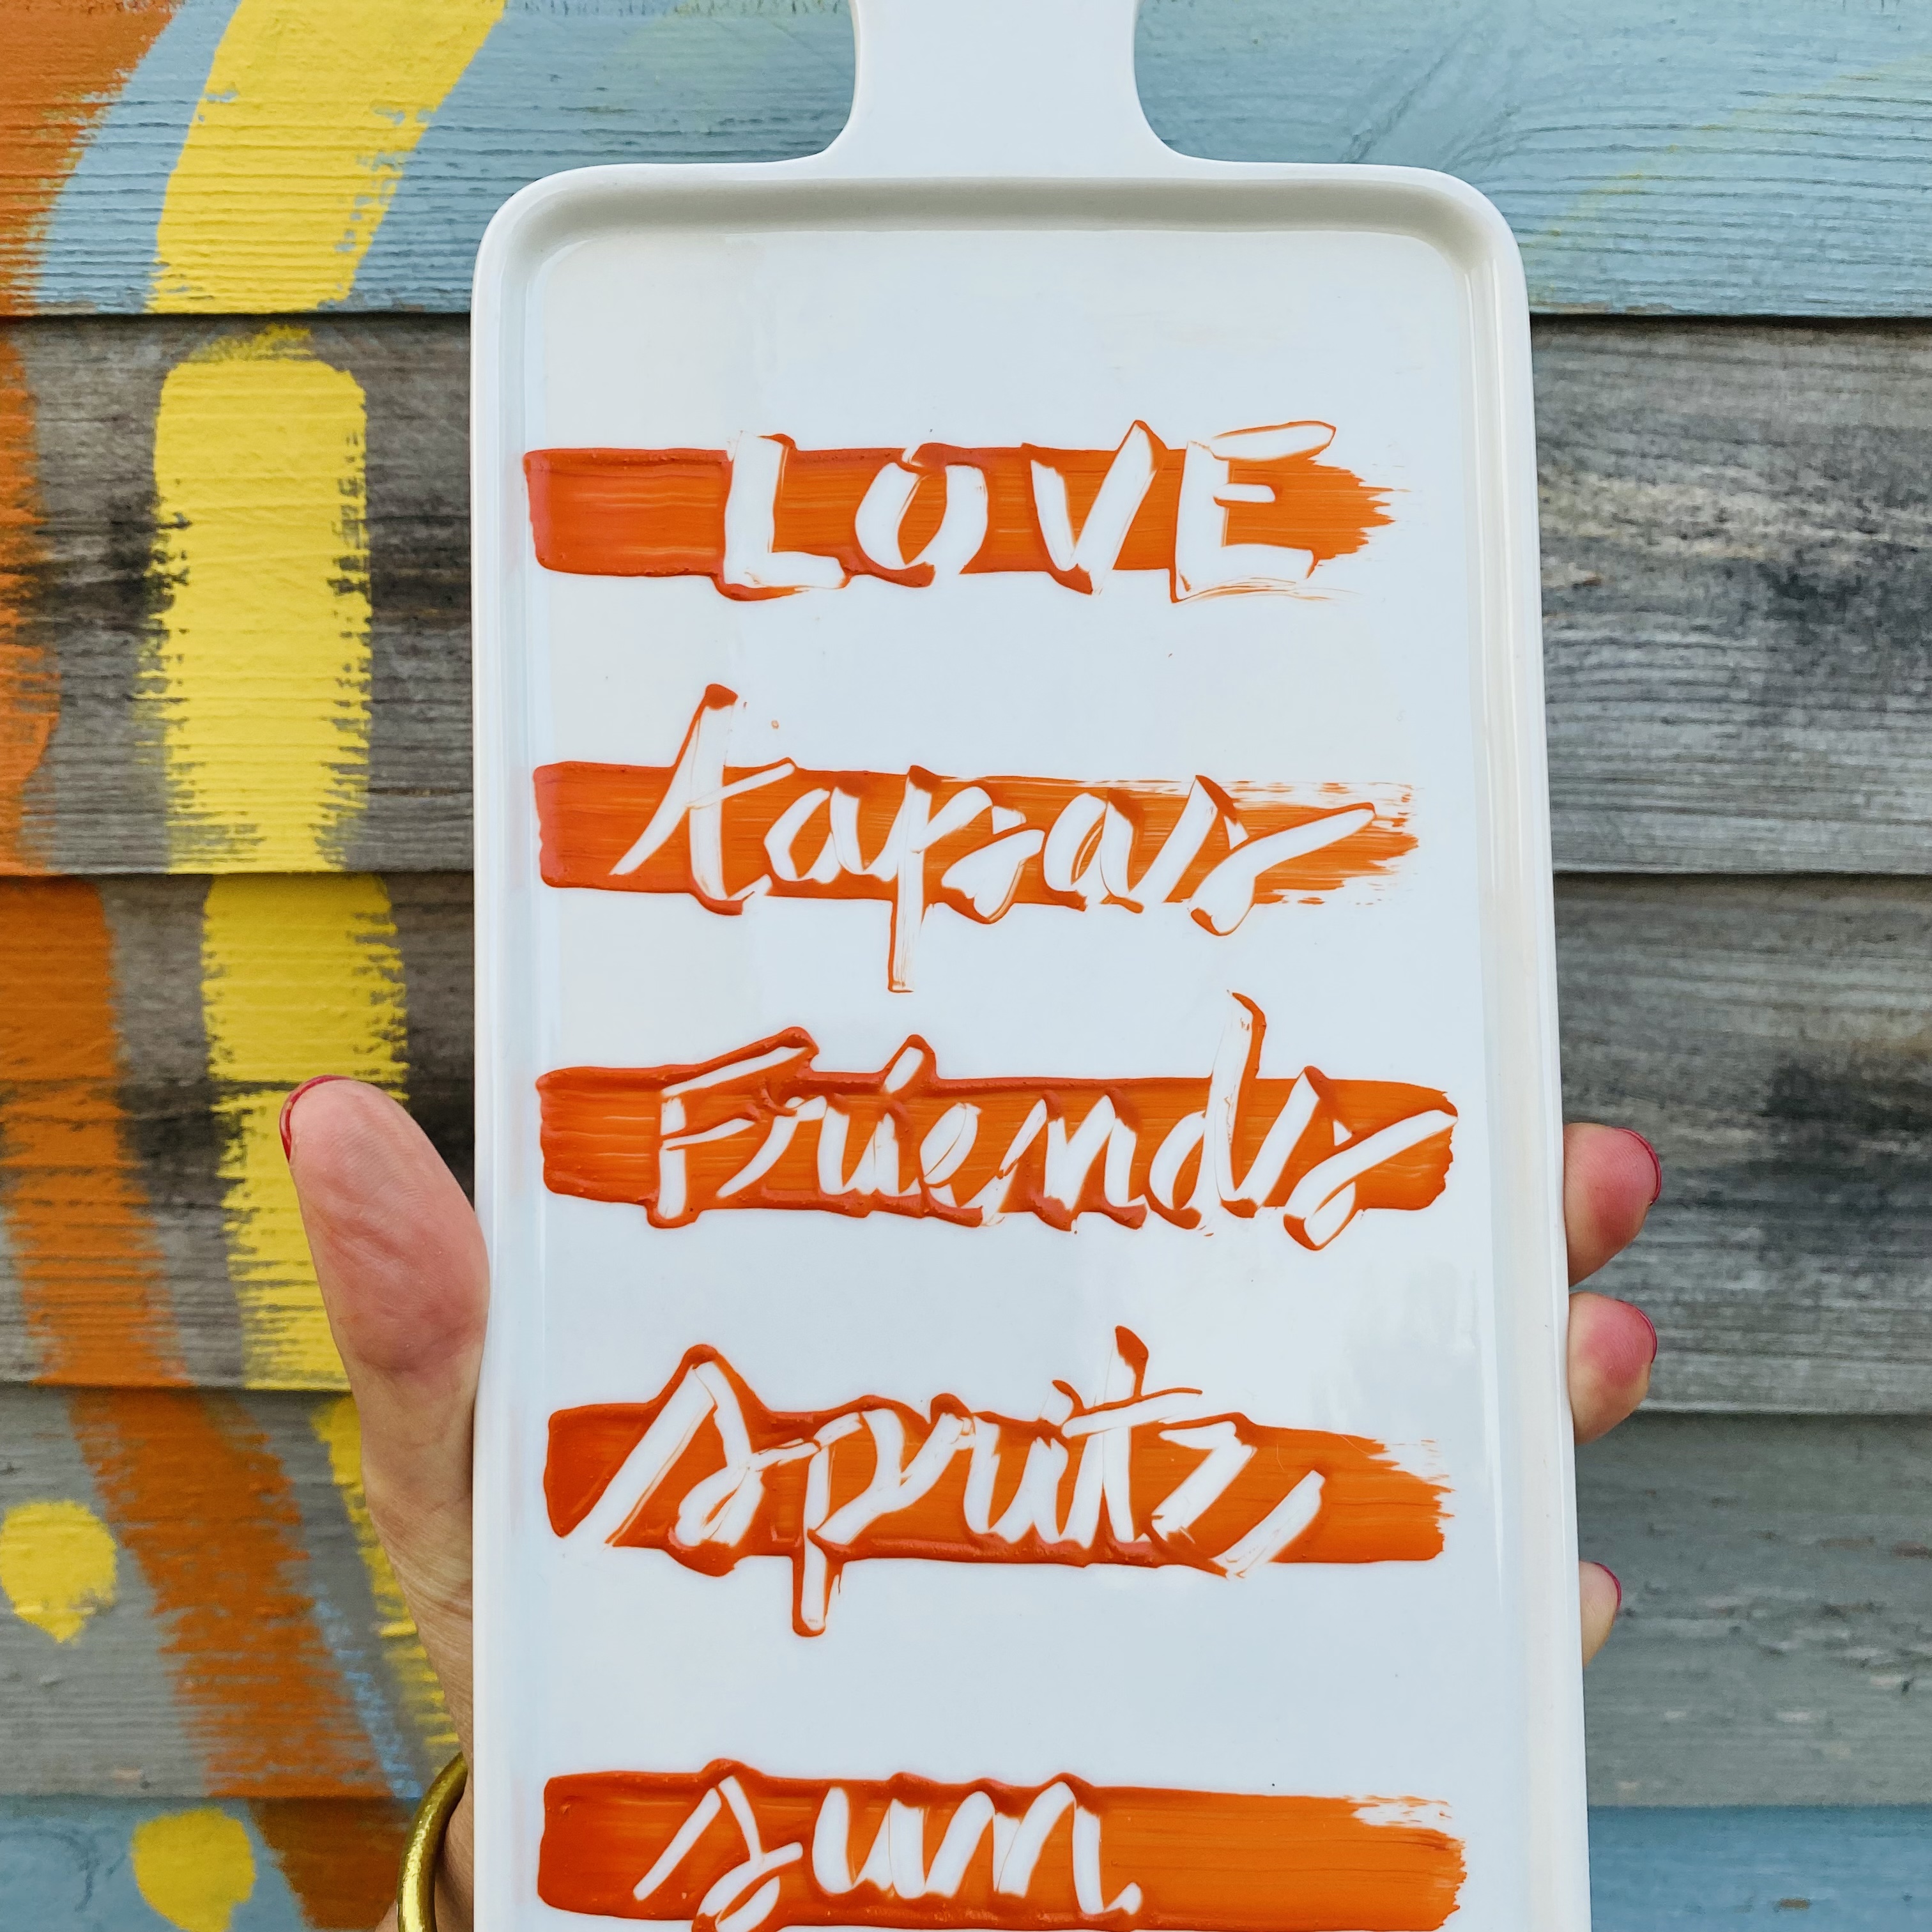 LOVE
tapas
Friends
spritz
sun